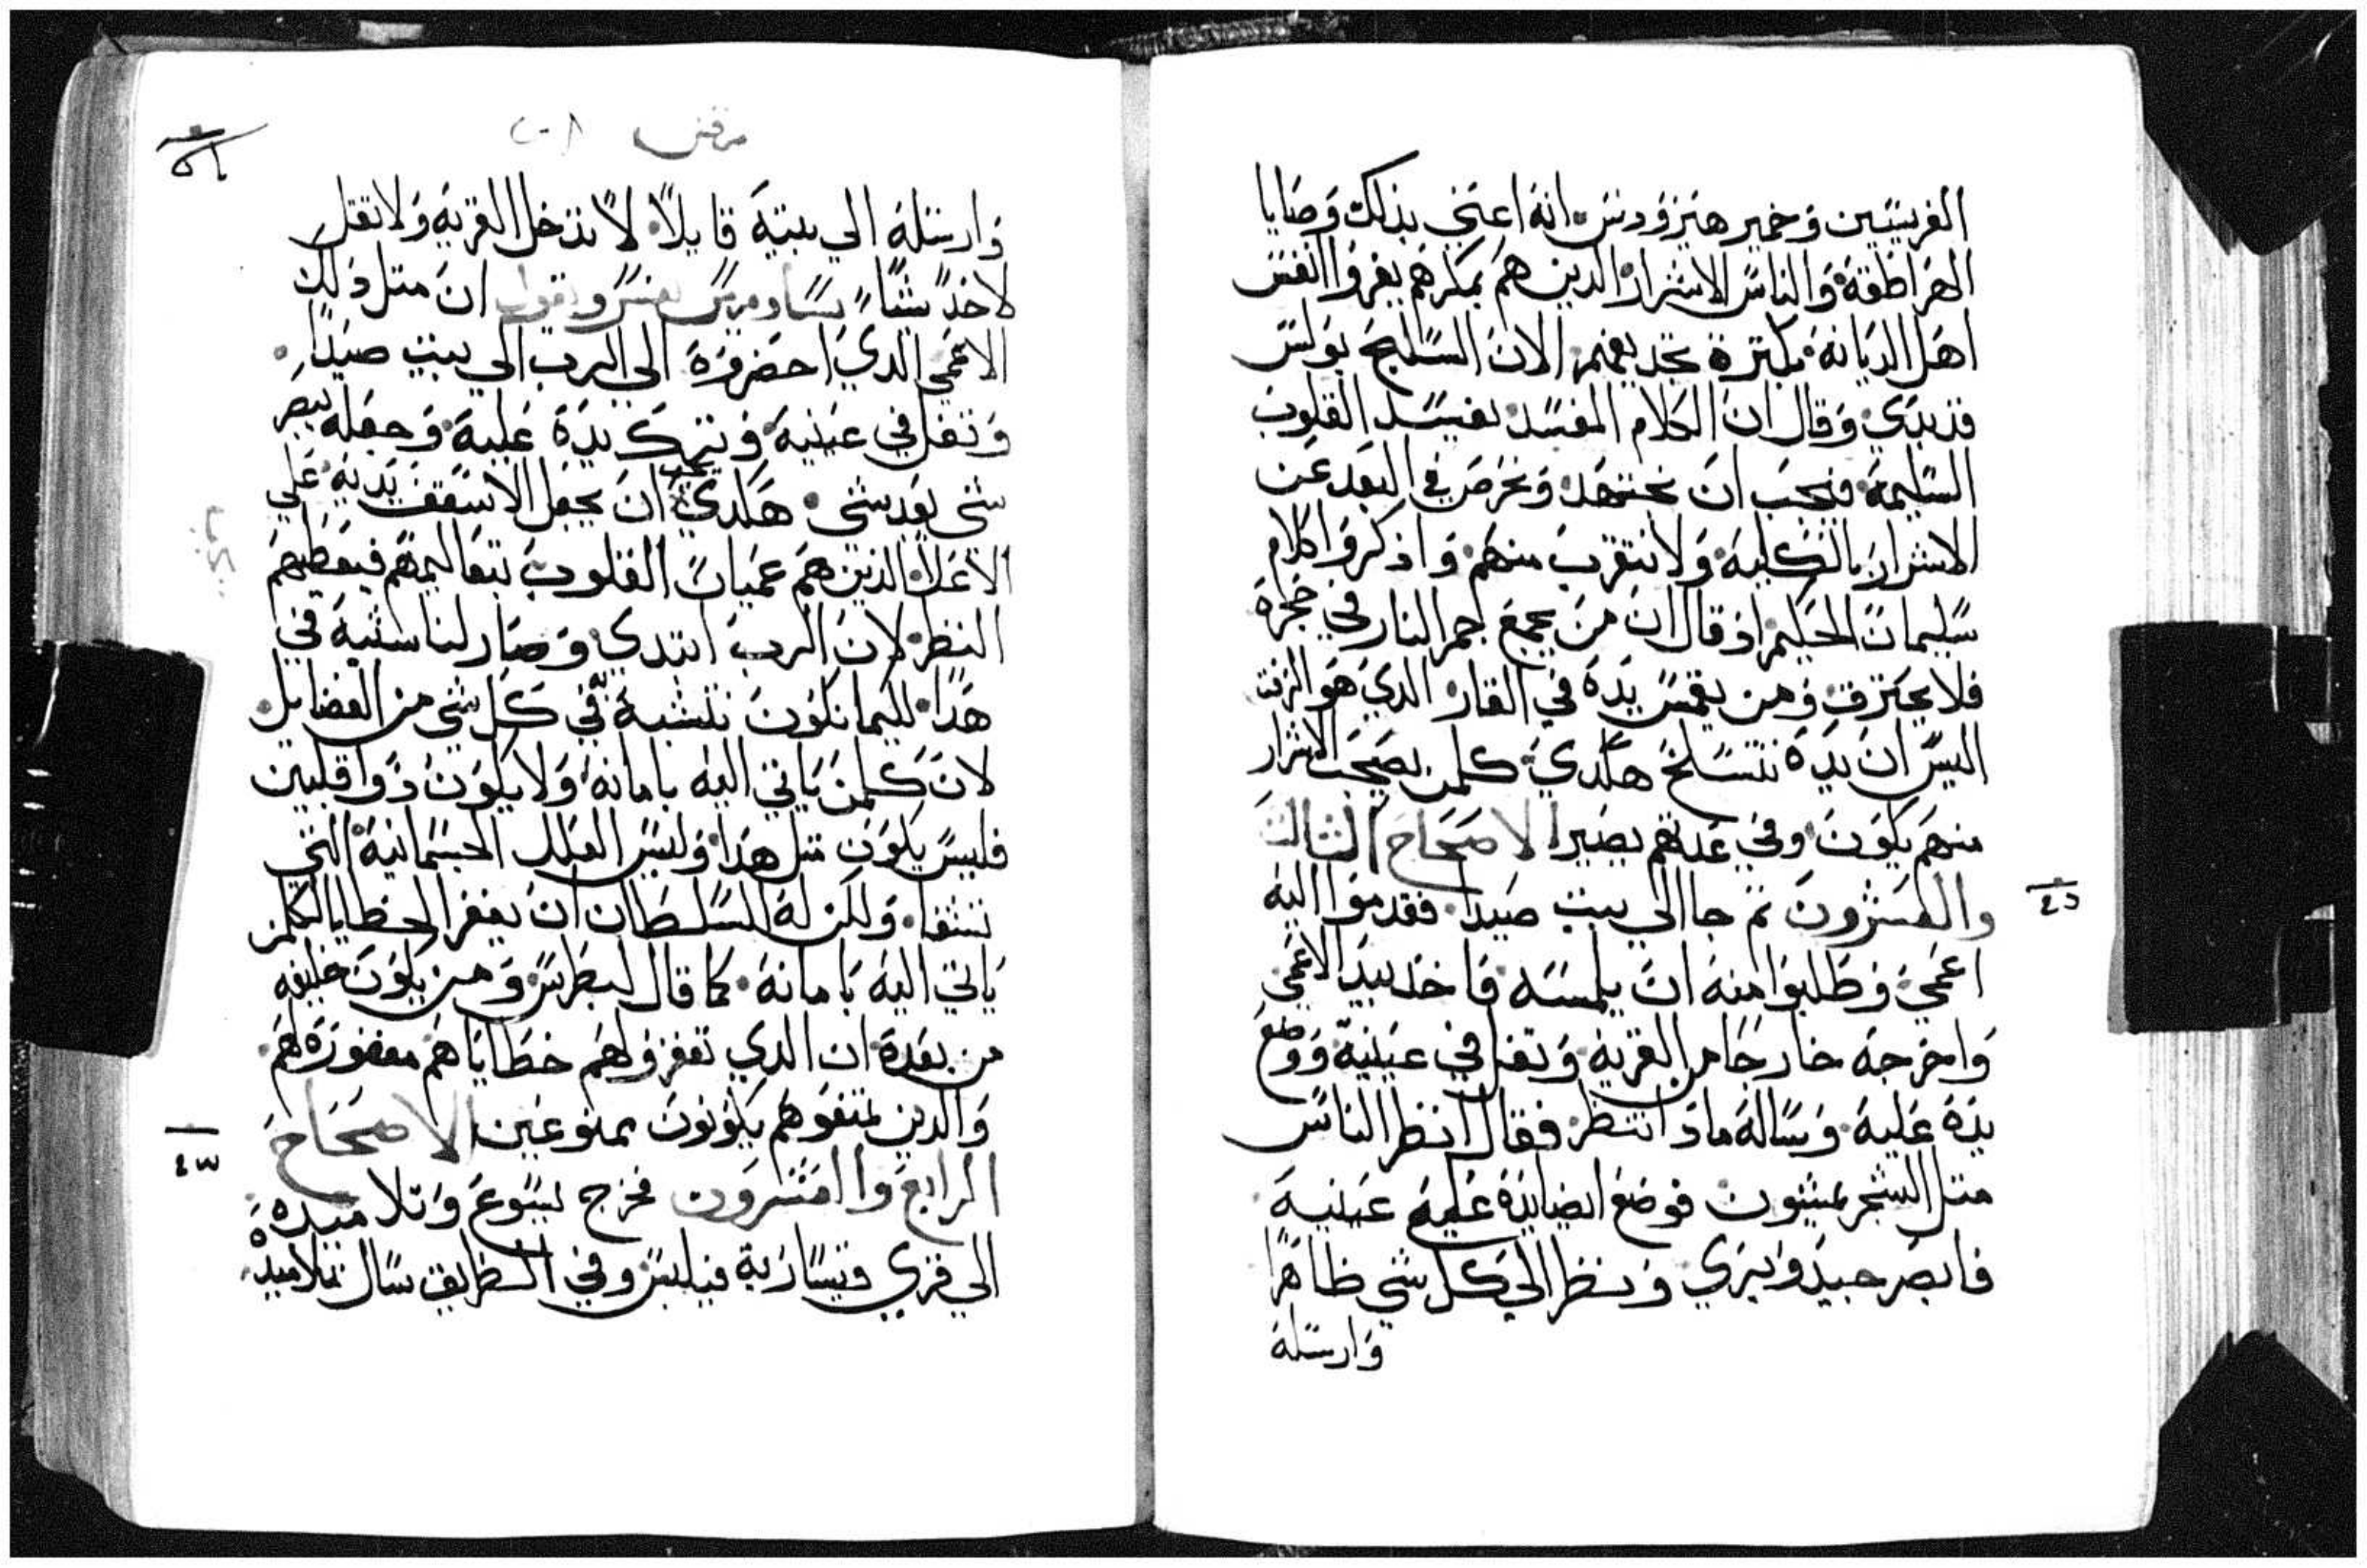 الفريسيين وخمير هيرودس انه اعني بذلك وصايا
الهراطقة والناس الاشرار الدين هم بمكرهم يغروا انفس
اهل الديانة بكترة تجديفهم الان السليح بولس
قد بدي وقال ان الكلام المفسد يفسد القلوب
السليمة فيجب ان نجتهد ونحرص في البعد عن
الاشرار بالكلية ولا نتقرب منهم واذكروا كلام
سليمان الحكيم اذ قال ان من يجمع جمر النار في حجره
فلا يحترق ومن يغمس يده في القار الدي هو الزفت
اليس ان يده تتسلخ هكدي كلمن يصحب الاشرار
منهم يكون وفي عدتهم يصير الاصحاح التالت
والعشرون تم جا الي بيت صيدا فقدموا اليه
٤٢
اعمي وطلبوا منه ان يلمسه فاخد بيد الاعمي
واخرجه خارجا من القرية وتفل في عينيه ووضع
يده عليه وساله مادا تنظر فقال انظر الناس
متل الشجر يمشون فوضع ايضا يده عليه عينيه
فابصر جيد وبري ونظر الي كل شي ظاهرا
وارسله
مرقس
٥١
وارسله الي بيته قايلا لا تدخل القرية ولا تقل
لاخد شيا وتقول ان متل دلك
الاعمي الدي احضروه الي الرب الي بيت صيدا
وتفل في عينيه وترك يده عليه وجعله يبصر
شي بعد شي هكدي يجب ان يجعل الاسقف يديه علي
الاعلا الذين هم عميان القلوب بتعاليمهم فيعطيهم
النظر لان الرب ابتدي وصار لنا شبه في
هدا لكيما نكون نتشبه في كل شي من الفضايل
لان كلمن ياتي اليه بامانه ولا يكون ذوا قلبين
فليس يكون متل هدا وليس العلل الجسمانية التي
تشفا ولكن له السلطان ان يغفر الخطايا لكلمن
ياتي اليه بامانه كما قال لبطرس ومن يكون خليفه
من بعده ان الدي تغفروا لهم خطاياهم مغفوره لهم
والدين تمنعوهم يكونون ممنوعين الاصحاح
٤٣
الرابع والعشرون فخرج يسوع وتلاميده
الي قري قيسارية فيلبس وفي الطريق سال تلاميده